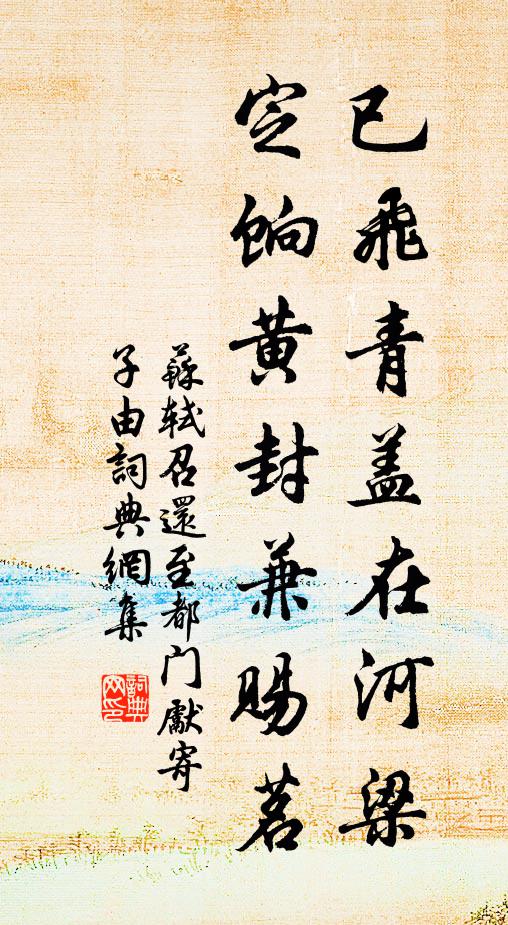 已飛青盖在河梁
定餉黄封兼賜茗
蘇軾召還至都門獻寄
子由詞典網集
詞典網印